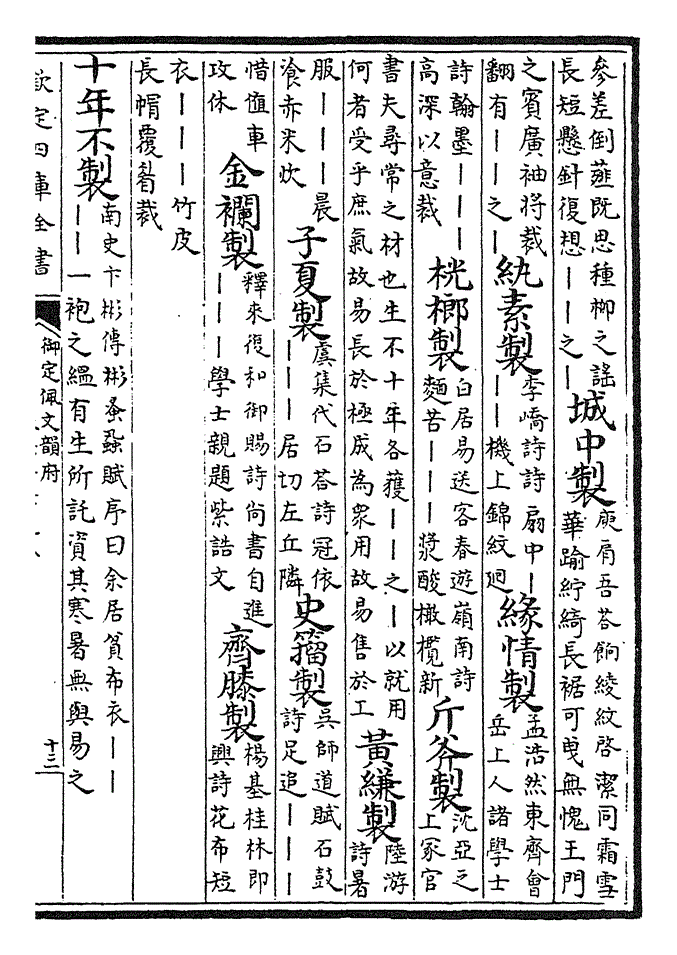 參差倒薤既思種柳之謠
長短懸針復想——之—
城中製
庾肩吾荅餉綾紋啓潔同霜雪
華踰紵綺長裾可曳無愧王門
之賓廣袖將裁
翻有——之—
紈素製
李嶠詩詩扇中—
——機上錦紋迴
緣情製
孟浩然東齊會
岳上人諸學士
詩翰墨———
高深以意裁
桄榔製
白居易送客春遊嶺南詩
麵苦———漿酸橄欖新
斤斧製
沈亞之
上冢官
書夫尋常之材也生不十年各獲——之—以就用
何者受乎庶氣故易長於極成為衆用故易售於工
黃縑製
陸游
詩暑
服———晨
飡赤米炊
子夏製
虞集代石荅詩冠依
———居切左丘隣
史籀製
吳師道賦石鼓
詩足追———
惜值車
攻休
金襴製
釋來復和御賜詩尚書自進
———學士親題紫誥文
齊膝製
楊基桂林即
興詩花布短
衣———竹皮
長帽覆裁
十年不製
南史卞彬傳彬蚤蝨賦序曰余居貧布衣——
——一袍之緼有生所託資其寒暑無與易之
欽定四庫全書
御定佩文韻府
十三